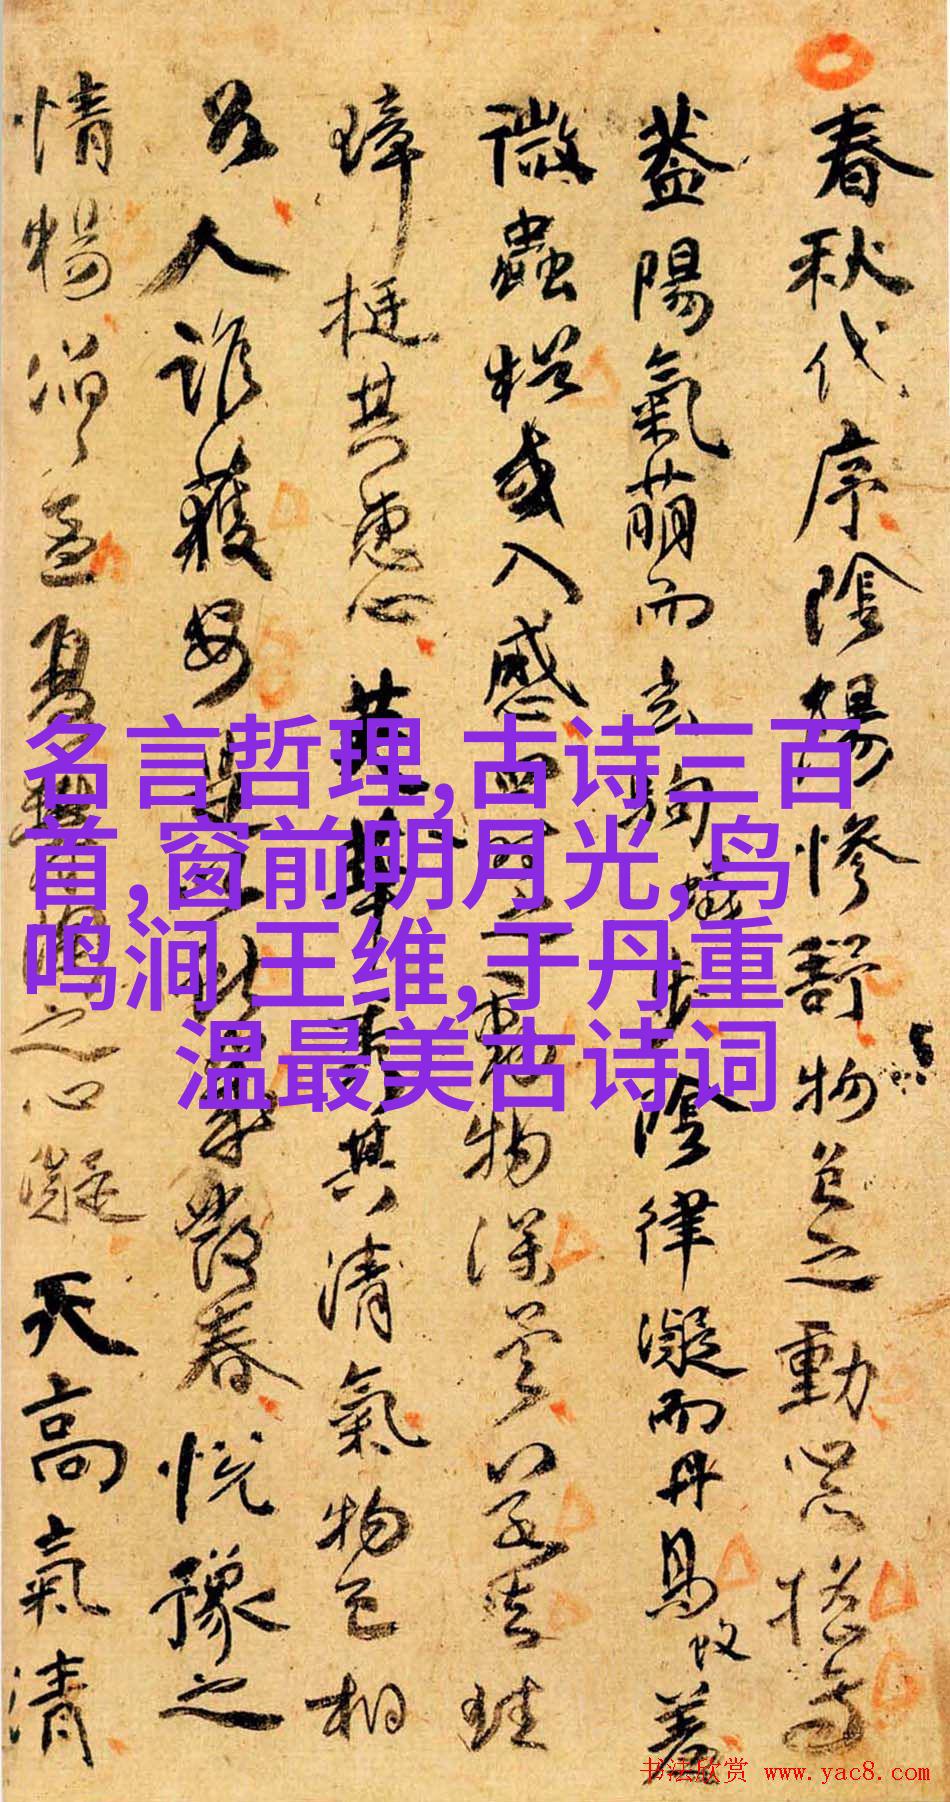 春秋代序陰陽慘舒物色之動心亦搖焉
蓋陽氣萌而玄駒蟻步陰律凝而丹鳥蚊羞
微蟲猶或入感四時之動物深矣若夫珪
璋挺其惠心英華秀其清氣物色相
召人誰獲安是以獻歲發春悅豫之
情暢滔滔孟夏鬱陶之心凝天高氣清
名言哲理,古诗三百
首,窗前明月光,鸟
鸣涧 王维,于丹重
温最美古诗词
书法欣赏 www.yac8.com